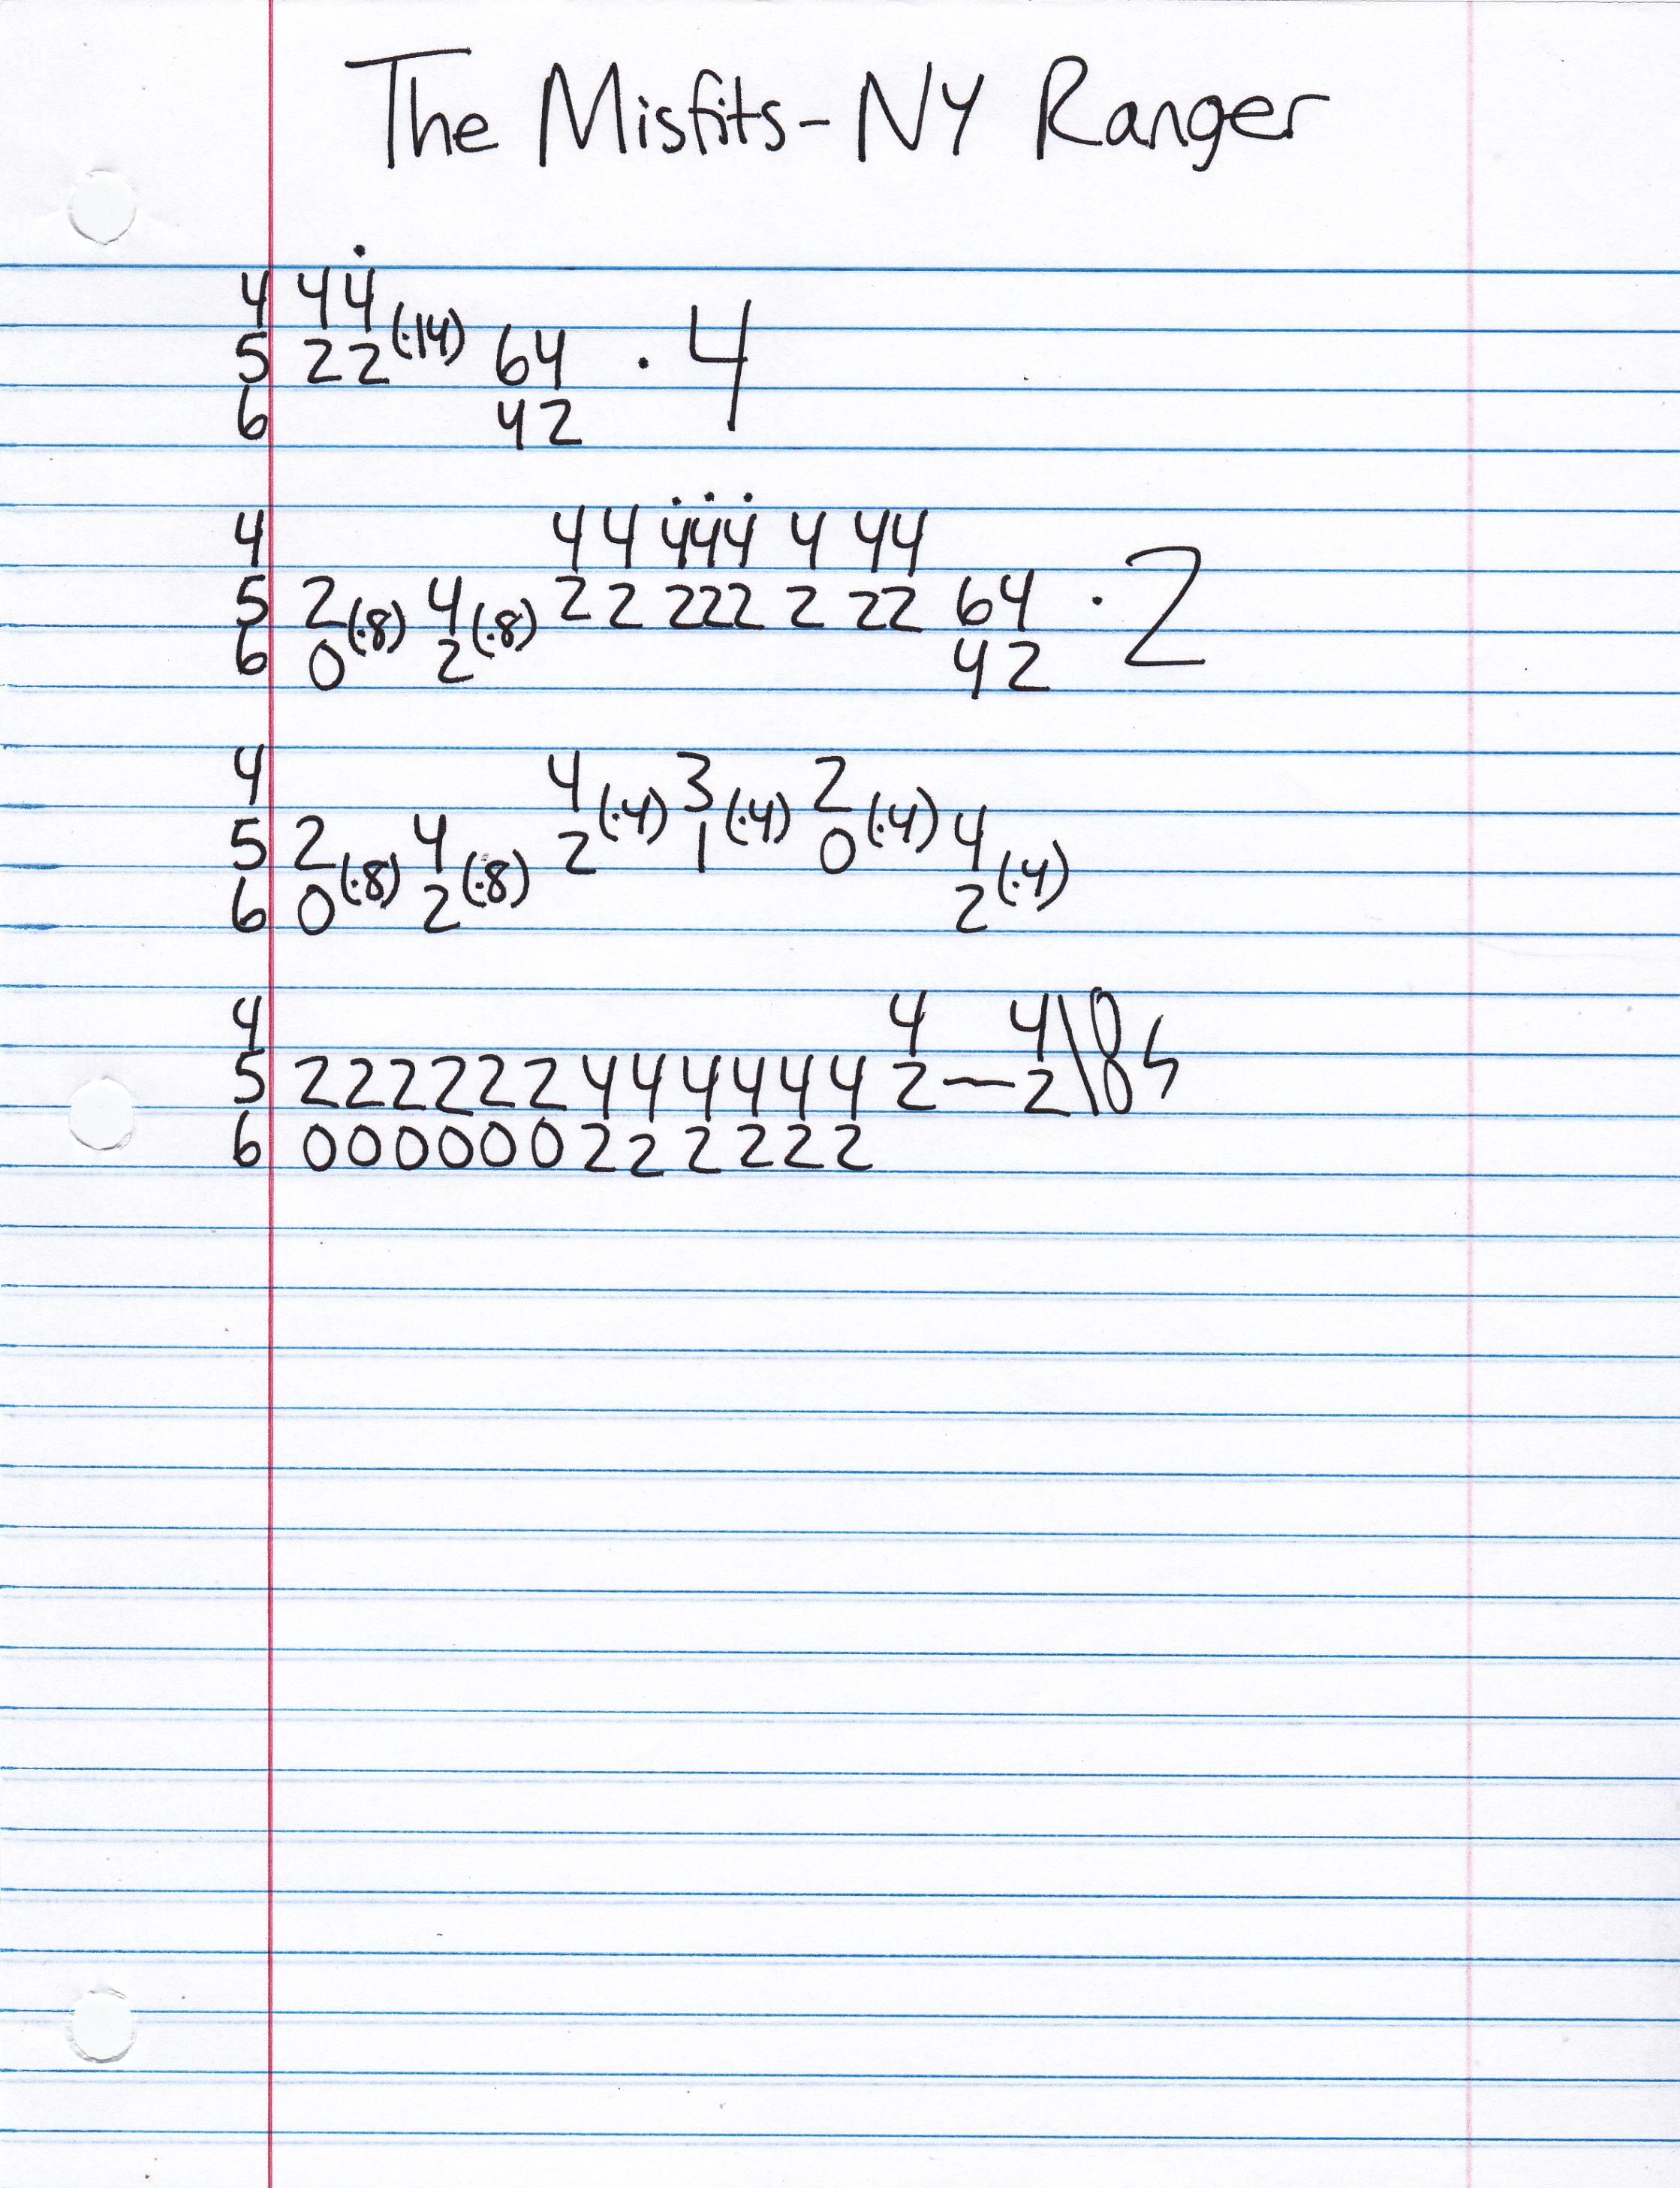 The Misfits - NY Ranger
4 4 4
5 2 2 (·14) 64 · 4
6 42
4 4 4 444 4 44
5 2 (·8) 4 (·8) 2 2 222 2 22 64 · 2
6 0 2 42
4 4 (·4) 3 (·4) 2 (·4)
5 2 (·8) 4 (·8) 2 1 0 4 (·4)
6 0 2 2
4 4 4
5 2 2 2 2 2 2 4 4 4 4 4 4 2 — 2 \
6 0 0 0 0 0 0 2 2 2 2 2 2